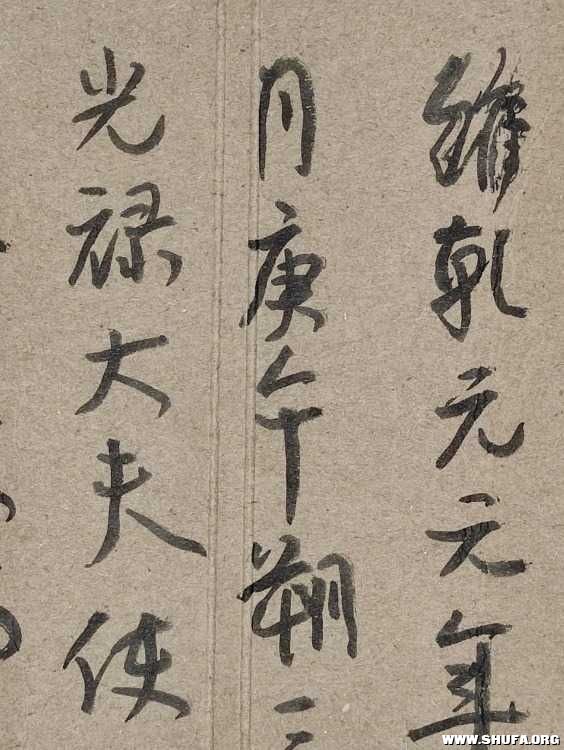 維乾元元年
月庚午朔三
光禄大夫使
WWW.SHUFA.ORG